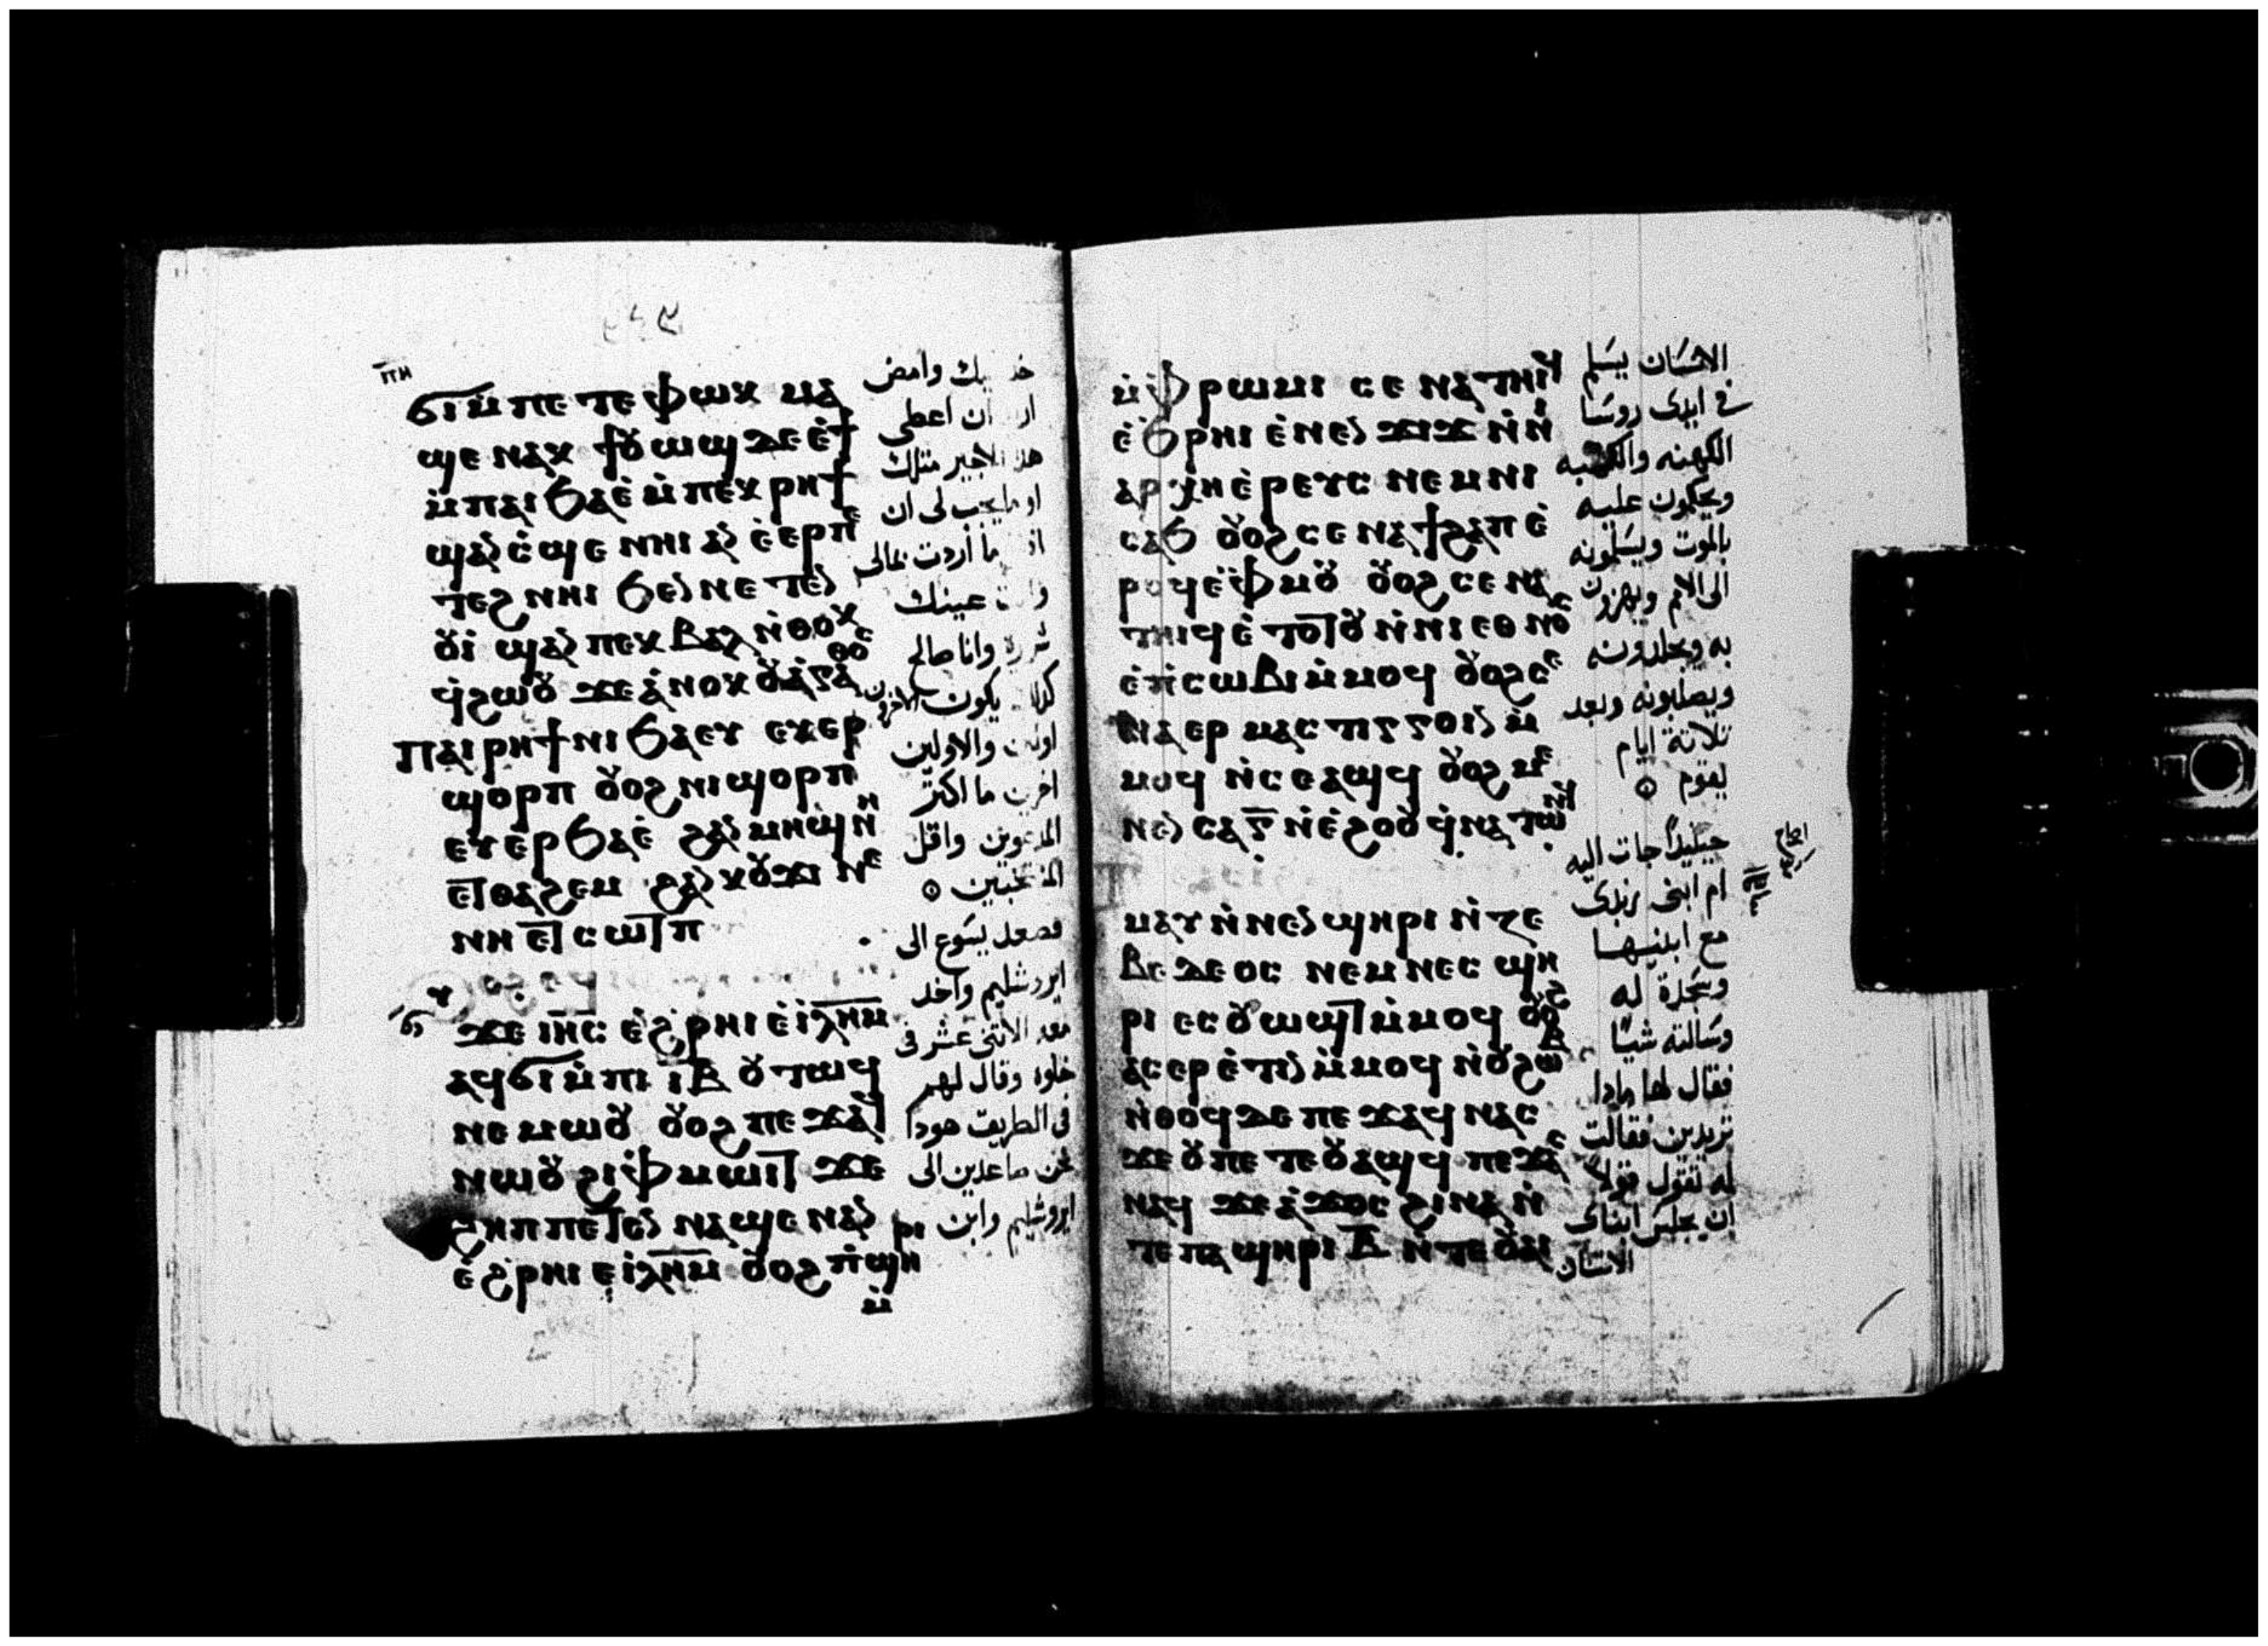 ⲡⲏ
ϭⲓⲙ̀ⲡⲉⲧⲉⲫⲱⲕ ⲙⲁ
ϣⲉ ⲛⲁⲕ ϯⲟⲩⲱϣ ⲇⲉ ⲉ̀ϯ
ⲙ̀ⲡⲁⲓϧⲁⲉ̀ ⲙ̀ⲡⲉⲕⲣⲏϯ
ϣⲁⲛ ⲥ̀ϣⲉ ⲛⲏⲓ ⲁⲛ ⲉ̀ⲉⲣⲡⲉ
ⲧⲉϩⲛⲏⲓ ϧⲉⲛ ⲛⲉⲧⲉⲛ
ⲟⲩⲓ̀ ϣⲁⲛ ⲡⲉⲕⲃⲁⲗ ⲛ̀ⲑⲟⲕ
ϥ̀ϩⲱⲟⲩ ϫⲉ ⲁ̀ⲛⲟⲕ ⲟⲩⲁ̀ⲅⲁ̀ⲑⲟⲥ
ⲡⲁⲓⲣⲏϯ ⲛⲓϧⲁⲉⲩ ⲉⲩⲉⲣ
ϣⲟⲣⲡ ⲟⲩⲟϩ ⲛⲓϣⲟⲣⲡ
ⲉⲩⲉ̀ⲣϧⲁⲉ̀ ϩⲁⲛⲙⲏϣ ⲛ̀ⲏ
ⲉⲧⲑⲁϩⲉⲙ ϩⲁⲛⲕⲟⲩϫⲓ ⲛⲉ
ⲛⲏ ⲉⲧⲥⲱⲧⲡ
ϫⲉ ⲓⲏ̅ⲥ ⲉ̀ϩ̀ⲣⲏⲓ ⲉ̀ⲓ̀ⲗⲏ̅ⲙ
ⲁϥϭⲓ ⲙ̀ⲡⲓ ⲓ̅ⲃ̅ ⲟⲩⲧⲱϥ
ⲛⲉⲙⲱⲟⲩ ⲟⲩⲟϩ ⲡⲉϫⲁϥ
ⲛⲱⲟⲩ ϩⲓⲫ̀ⲙⲱⲓⲧ ϫⲉ
ϩⲏⲡⲡⲉ ⲧⲉⲛ ⲛⲁϣⲉ ⲛⲁⲛ
ⲉ̀ϩ̀ⲣⲏⲓ ⲉ̀ⲓ̀ⲗⲏ̅ⲙ ⲟⲩⲟϩ ⲡ̀ϣⲏⲣⲓ
ⲙ̀
وامض
ان اعطى
هذا الاخير مثلك
لى ان
ما اردت بمالى
عينك
شريرة وانا صالح
يكون الاخرون
اولين والاولين
اخرين ما اكثر
المدعوين واقل
المنتخبين
فصعد يسوع الى
ايروشليم واخد
معه الاتنى عشر فى
خلوه وقال لهم
فى الطريق هودا
نحن صاعدين الى
ايروشليم وابن
ⲙ̀ⲫ̀ⲣⲱⲙⲓ ⲥⲉ ⲛⲁⲧⲏⲓϥ
ⲉ̀ϧ̀ⲣⲏⲓ ⲉ̀ⲛⲉⲛϫⲓϫ ⲛ̀ⲛⲓ
ⲁⲣⲭⲏⲉ̀ⲣⲉⲩⲥ ⲛⲉⲙ ⲛⲓ
ⲥⲁϧ ⲟⲩⲟϩ ⲥⲉ ⲛⲁϯϩⲁⲡ ⲉ̀
ⲣⲟϥ ⲉ̀ⲫ̀ⲙⲟⲩ ⲟⲩⲟϩ ⲥⲉ ⲛⲁ
ⲧⲏⲓϥ ⲉ̀ⲧⲟⲧⲟⲩ ⲛ̀ⲛⲓⲉⲑⲛⲟⲥ
ⲉ̀ⲡ̀ⲥⲱⲃⲓ ⲙ̀ⲙⲟϥ ⲟⲩⲟϩ ⲥⲉ
ⲛⲁⲉⲣ ⲙⲁⲥⲧⲓⲅⲅⲟⲓⲛ ⲙ̀
ⲙⲟϥ ⲛ̀ⲥⲉⲁϣϥ ⲟⲩⲟϩ ⲙⲉ
ⲛⲉⲛⲥⲁ ⲅ̅ ⲛ̀ⲉ̀ϩⲟⲟⲩ ϥ̀ⲛⲁⲧⲱⲛϥ
ⲙⲁⲩ ⲛ̀ⲛⲉⲛϣⲏⲣⲓ ⲛ̀ⲍⲉ
ⲃⲉⲇⲉⲟⲥ ⲛⲉⲙ ⲛⲉⲥ ϣⲏ
ⲣⲓ ⲉⲥⲟⲩⲱϣⲧ ⲙ̀ⲙⲟϥ ⲟⲩⲟϩ
ⲁⲥⲉⲣⲉ̀ⲧⲓⲛ ⲙ̀ⲙⲟϥ ⲛ̀ⲟⲩϩⲱⲃ
ⲛ̀ⲑⲟϥ ⲇⲉ ⲡⲉϫⲁϥ ⲛⲁⲥ
ϫⲉ ⲟⲩ ⲡⲉⲧⲉⲟⲩⲁϣϥ ⲡⲉϫⲁⲥ
ⲛⲁϥ ϫⲉ ⲁ̀ϫⲟⲥ ϩⲓⲛⲁ ⲛ̀
ⲧⲉ ⲡⲁϣⲏⲣⲓ ⲃ̅ ⲛ̀ⲧⲉ ⲟⲩⲁⲓ
الانسان يسلم
فى ايدى روسا
الكهنه والكتبه
ويحكمون عليه
بالموت ويسلمونه
الى الامم ويهزون
به ويجلدونه
ويصلبونه وبعد
تلاتة ايام
يقوم
حينيداً جات اليه
ام ابنى زبدى
مع ابنيها
وسجدة له
وسالته شيًا
فقال لها مادا
تريدين فقالت
له تقول قولاً
ان يجلس ابناى
الاتنان